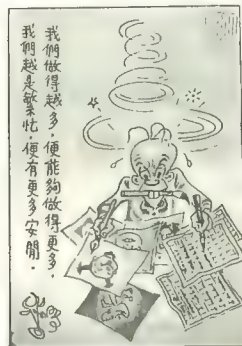 我們做得越多，便能夠做得更多，
我們越是繁忙，便有更多安閒。